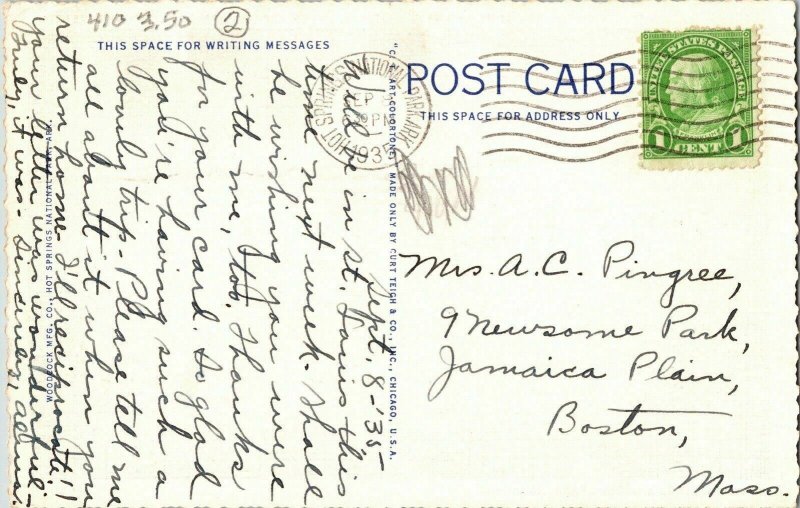 410 3.50 2
THIS SPACE FOR WRITING MESSAGES
"C.T. ART-COLORTONE" MADE ONLY BY CURT TEICH & CO., INC., CHICAGO, U.S.A.
WOODCOCK MFG. CO., HOT SPRINGS NATIONAL PARK, ARK.
Sept. 8-'35
Will be in St. Louis this
time next week. Shall
be wishing you were
with me, too. Thanks
for your card. So glad
you're having such a
lovely trip. Please tell me
all about it when you
return home. I'll reciprocate!!
Your letter was wonderful-
Truly, it was. Sincerely,
HOT SPRINGS NATIONAL PARK ARK
PM
193
POST CARD
THIS SPACE FOR ADDRESS ONLY
UNITED STATES POSTAGE
FRANKLIN
1 CENT 1
Mrs. A. C. Pingree,
9 Newsome Park,
Jamaica Plain,
Boston,
Mass.